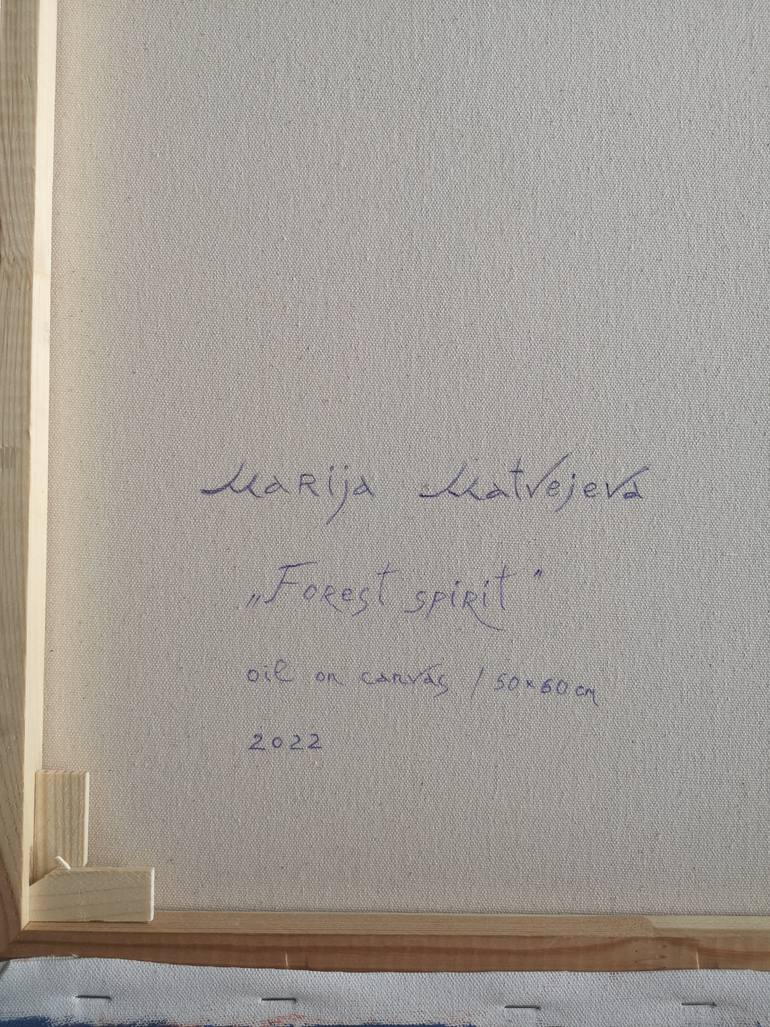 Marija Matvejeva
„Forest spirit"
oil on canvas / 50x60 cm
2022